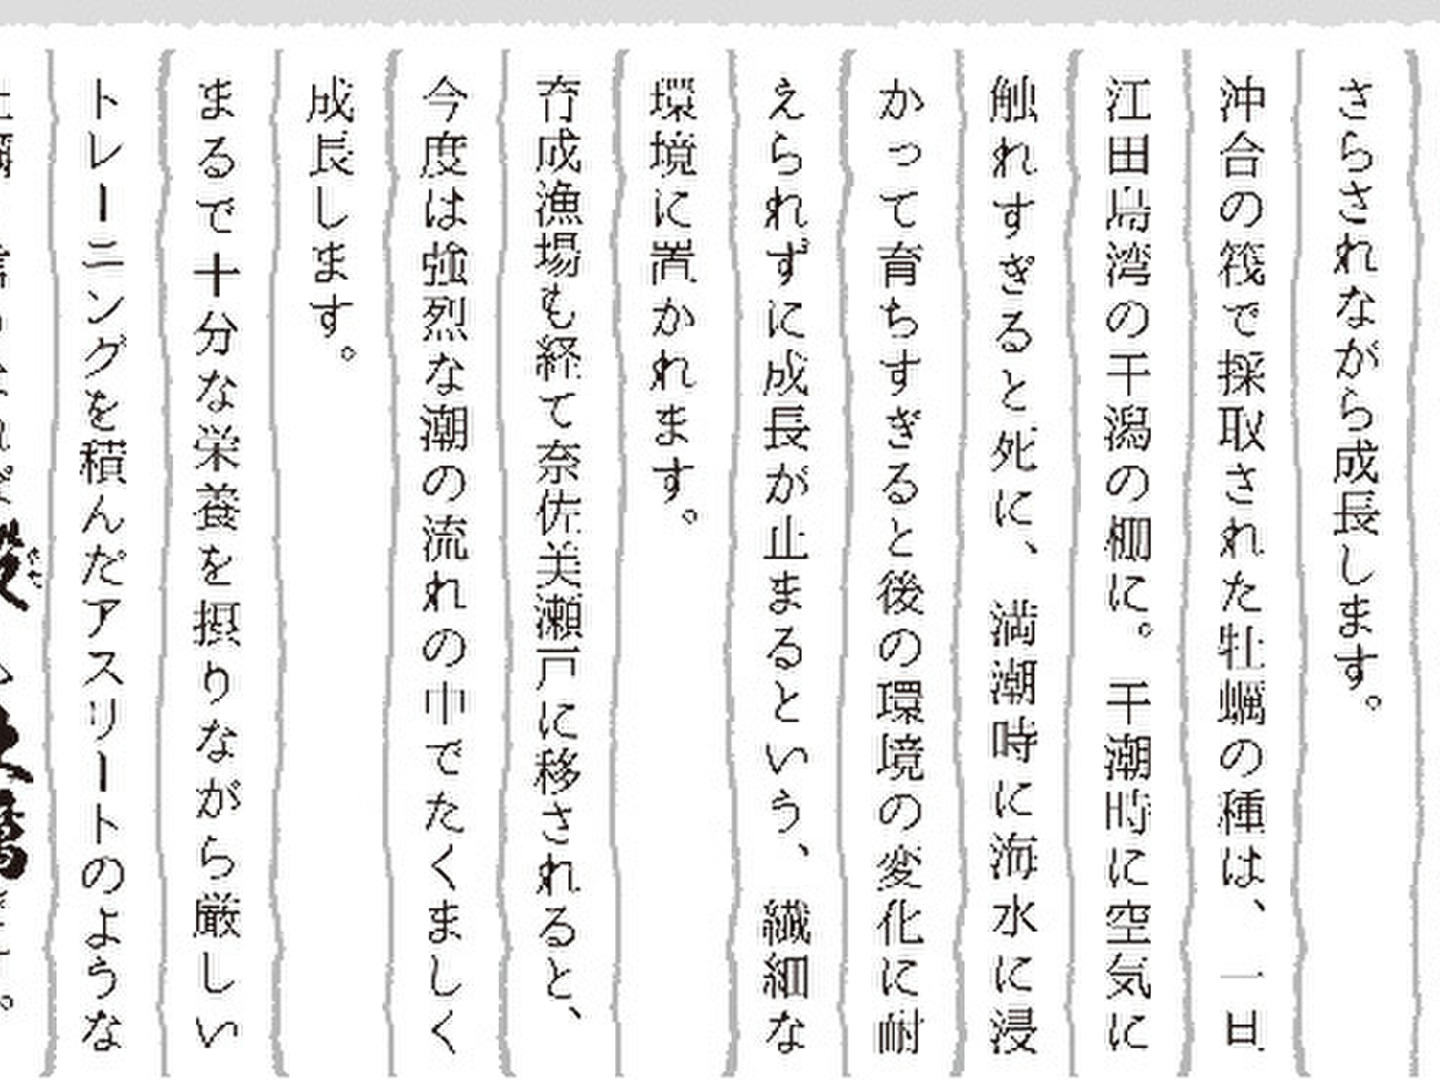 さらされながら成長します。
沖合の筏で採取された牡蠣の種は、一旦
江田島湾の干潟の棚に。干潮時に空気に
触れすぎると死に、満潮時に海水に浸
かって育ちすぎると後の環境の変化に耐
えられずに成長が止まるという、繊細な
環境に置かれます。
育成漁場も経て奈佐美瀬戸に移されると、
今度は強烈な潮の流れの中でたくましく
成長します。
まるで十分な栄養を摂りながら厳しい
トレーニングを積んだアスリートのような